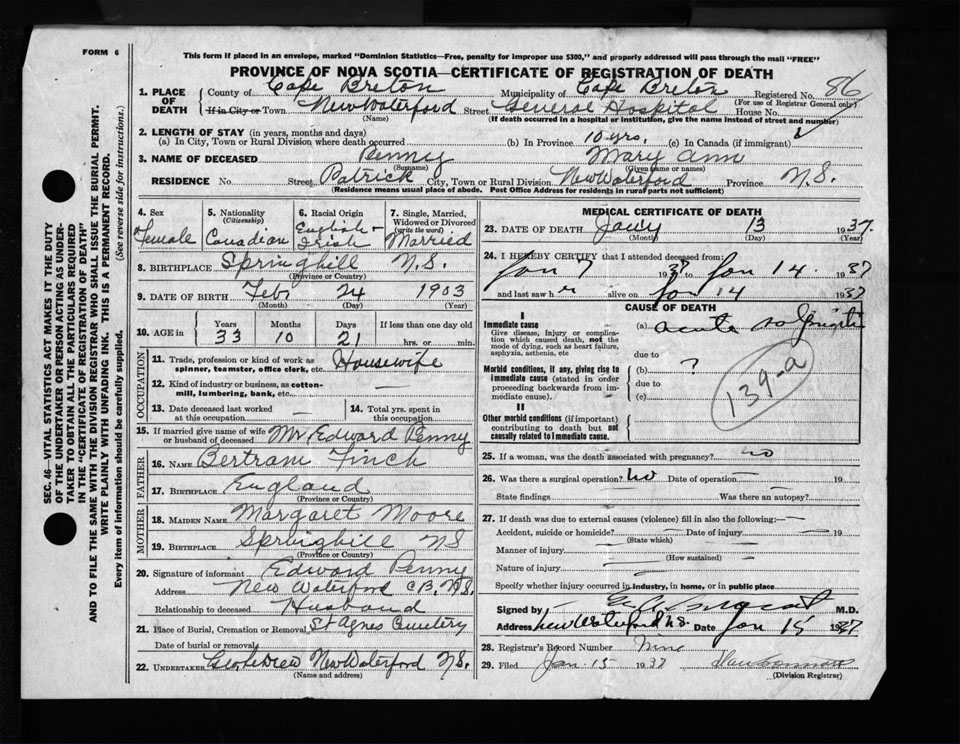 FORM 6
This form if placed in an envelope, marked "Dominion Statistics—Free, penalty for improper use $300," and properly addressed will pass through the mail "FREE"
PROVINCE OF NOVA SCOTIA—CERTIFICATE OF REGISTRATION OF DEATH
1. PLACE OF DEATH County of Cape Breton Municipality of Cape Breton Registered No. 86
(For use of Registrar General only)
If in City or Town New Waterford Street General Hospital House No.
(Name) (If death occurred in a hospital or institution, give the name instead of street and number)
2. LENGTH OF STAY (in years, months and days)
(a) In City, Town or Rural Division where death occurred (b) In Province 10 yrs. (c) In Canada (if immigrant)
3. NAME OF DECEASED Penny Mary Ann
(Surname) (Given name or names)
RESIDENCE No. Street Patrick City, Town or Rural Division New Waterford Province N.S.
(Residence means usual place of abode. Post Office Address for residents in rural parts not sufficient)
4. Sex Female
5. Nationality (Citizenship) Canadian
6. Racial Origin English - Irish
7. Single, Married, Widowed or Divorced (write the word) Married
8. BIRTHPLACE Springhill N.S.
(Province or Country)
9. DATE OF BIRTH Feb 24 1903
(Month) (Day) (Year)
10. AGE in Years 33 Months 10 Days 21 If less than one day old hrs. or min.
OCCUPATION
11. Trade, profession or kind of work as spinner, teamster, office clerk, etc. Housewife
12. Kind of industry or business, as cotton-mill, lumbering, bank, etc. —
13. Date deceased last worked at this occupation —
14. Total yrs. spent in this occupation —
15. If married give name of wife or husband of deceased Mr Edward Penny
FATHER
16. NAME Bertram Finch
17. BIRTHPLACE England
(Province or Country)
MOTHER
18. MAIDEN NAME Margaret Moore
19. BIRTHPLACE Springhill NS
(Province or Country)
20. Signature of informant Edward Penny
Address New Waterford C.B. N.S.
Relationship to deceased Husband
21. Place of Burial, Cremation or Removal St Agnes Cemetery
Date of burial or removal
22. UNDERTAKER New Waterford N.S.
(Name and address)
MEDICAL CERTIFICATE OF DEATH
23. DATE OF DEATH Jany 13 1937.
(Month) (Day) (Year)
24. I HEREBY CERTIFY that I attended deceased from:
Jan 7 1937 to Jan 14. 1937
and last saw h alive on Jan 14 1937
CAUSE OF DEATH
I
Immediate cause
Give disease, injury or complication which caused death, not the mode of dying, such as heart failure, asphyxia, asthenia, etc
(a) acute
due to
Morbid conditions, if any, giving rise to immediate cause (stated in order proceeding backwards from immediate cause).
(b) ?
due to
(c)
139-a
II
Other morbid conditions (if important) contributing to death but not causally related to immediate cause.
25. If a woman, was the death associated with pregnancy? no
26. Was there a surgical operation? No Date of operation — 19
State findings Was there an autopsy?
27. If death was due to external causes (violence) fill in also the following:—
Accident, suicide or homicide? Date of injury 19
(State which)
Manner of injury
(How sustained)
Nature of injury
Specify whether injury occurred in industry, in home, or in public place
Signed by M.D.
Address New Waterford N.S. Date Jan 15 1937
28. Registrar's Record Number Nine
29. Filed Jan. 15 1937
(Division Registrar)
SEC. 46—VITAL STATISTICS ACT MAKES IT THE DUTY
OF THE UNDERTAKER OR PERSON ACTING AS UNDER-
TAKER TO OBTAIN ALL THE PARTICULARS REQUIRED
IN THE "CERTIFICATE OF REGISTRATION OF DEATH"
AND TO FILE THE SAME WITH THE DIVISION REGISTRAR WHO SHALL ISSUE THE BURIAL PERMIT.
WRITE PLAINLY WITH UNFADING INK. THIS IS A PERMANENT RECORD.
Every item of information should be carefully supplied. (See reverse side for instructions.)